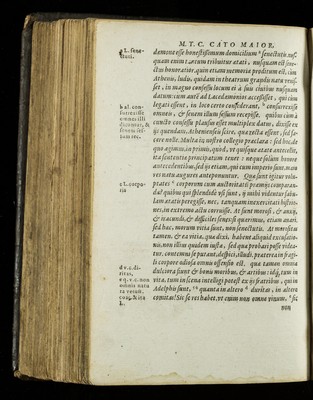 M. T. C. CATO MAIOR.
damone esse honestissimum domicilium senectutis nus
quam enim tantum tribuitur ætati, nusquam est sene-
ctus honoratior. quin etiam memoriæ proditum est, cùm
Athenis, ludis, quidam in theatrum grandis natu venis-
set, in magno consessu locum ei à suis ciuibus nusquam
datum: cùm autẽ ad Lacedæmonios accessisset, qui cùm
legati essent, in loco certo consederant, consurrexisse
omneis, & senem illum sessum recepisse. quibus cùm à
cuncto consessu plausus esset multiplex datus, dixisse ex
ijs quendam, Athenienseis scire, quæ recta essent, sed fa-
cere nolle. Multa in nostro collegio præclara: sed hoc, de
quo agimus, in primis, quòd, vt quisque ætate antecellit,
ita sententiæ principatum tenet: neque solùm honore
antecedentibus, sed ijs etiam, qui cum imperio sunt, maio
res natu augures anteponuntur. Quæ sunt igitur volu-
ptates corporum cum auctoritatis præmijs comparan-
dæ? quibus qui splendidè vsi sunt, ij mihi videntur fabu-
lam ætatis peregisse, nec, tanquam inexercitati histrio-
nes, in extremo actu corruisse. At sunt morosi, & anxij,
& iracundi, & difficiles senes: si quærimus, etiam auari.
sed hæc, morum vitia sunt, non senectutis. At morositas
tamen, & ea vitia, quæ dixi, habent aliquid excusatio-
nis, non illius quidem iustæ, sed quæ probari posse videa-
tur. contemni se putant, despici, illudi. præterea in fragi-
li corpore odiosa omnis offensio est. quæ tamen omnia
dulciora fiunt & bonis moribus, & artibus: idq; tum in
vita, tum in scena intelligi potest ex ijs fratribus, qui in
Adelphis sunt. quanta in altero duritas, in altero
comitas! Sic se res habet. vt enim non omne vinum, sic
non